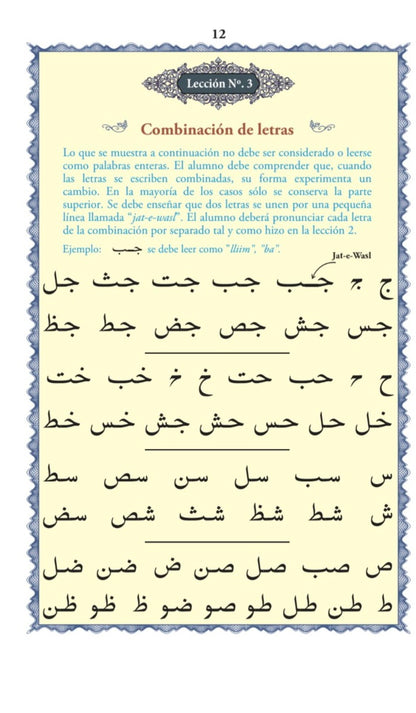 12
Lección Nº. 3
Combinación de letras
Lo que se muestra a continuación no debe ser considerado o leerse
como palabras enteras. El alumno debe comprender que, cuando
las letras se escriben combinadas, su forma experimenta un
cambio. En la mayoría de los casos sólo se conserva la parte
superior. Se debe enseñar que dos letras se unen por una pequeña
línea llamada "jat-e-wasl". El alumno deberá pronunciar cada letra
de la combinación por separado tal y como hizo en la lección 2.
Ejemplo: جب se debe leer como "lliim", "ba".
Jat-e-Wasl
ج جـ جـب جب جت جث جل
جس جش جص جض جط جظ
ح حـ حب حت خ خـ خب خت
خل حل حس حش جش خس خط
س سب سل سن سص سط
ش شط شظ شث شص سض
ص صب صل صن ض ضن ضل
ط طن طل طو صو ضو ظ ظو ظن